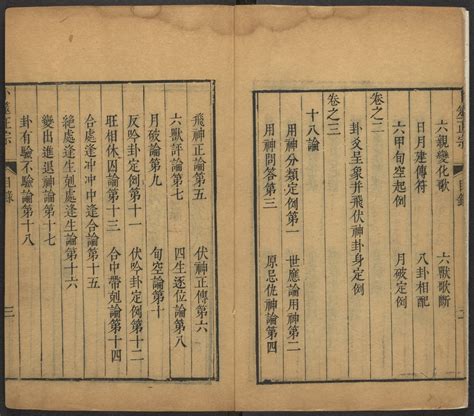 筮正宗 目錄
六親變化歌 六獸歌斷
日月建傳符 八卦相配
六甲旬空起例 月破定例
卷之二
卦爻呈象并飛伏神卦身定例
卷之三
十八論
用神分類定例第一 世應論用神第二
用神問答第三 原忌仇神論第四
飛神正論第五 伏神正傳第六
六獸評論第七 四生逐位論第八
月破論第九 旬空論第十
反吟卦定例第十一 伏吟卦定例第十二
旺相休囚論第十三 合中帶剋論第十四
合處逢冲冲中逢合論第十五
絕處逢生剋處逢生論第十六
變出進退神論第十七
卦有驗不驗論第十八
卜筮正宗 目錄 三